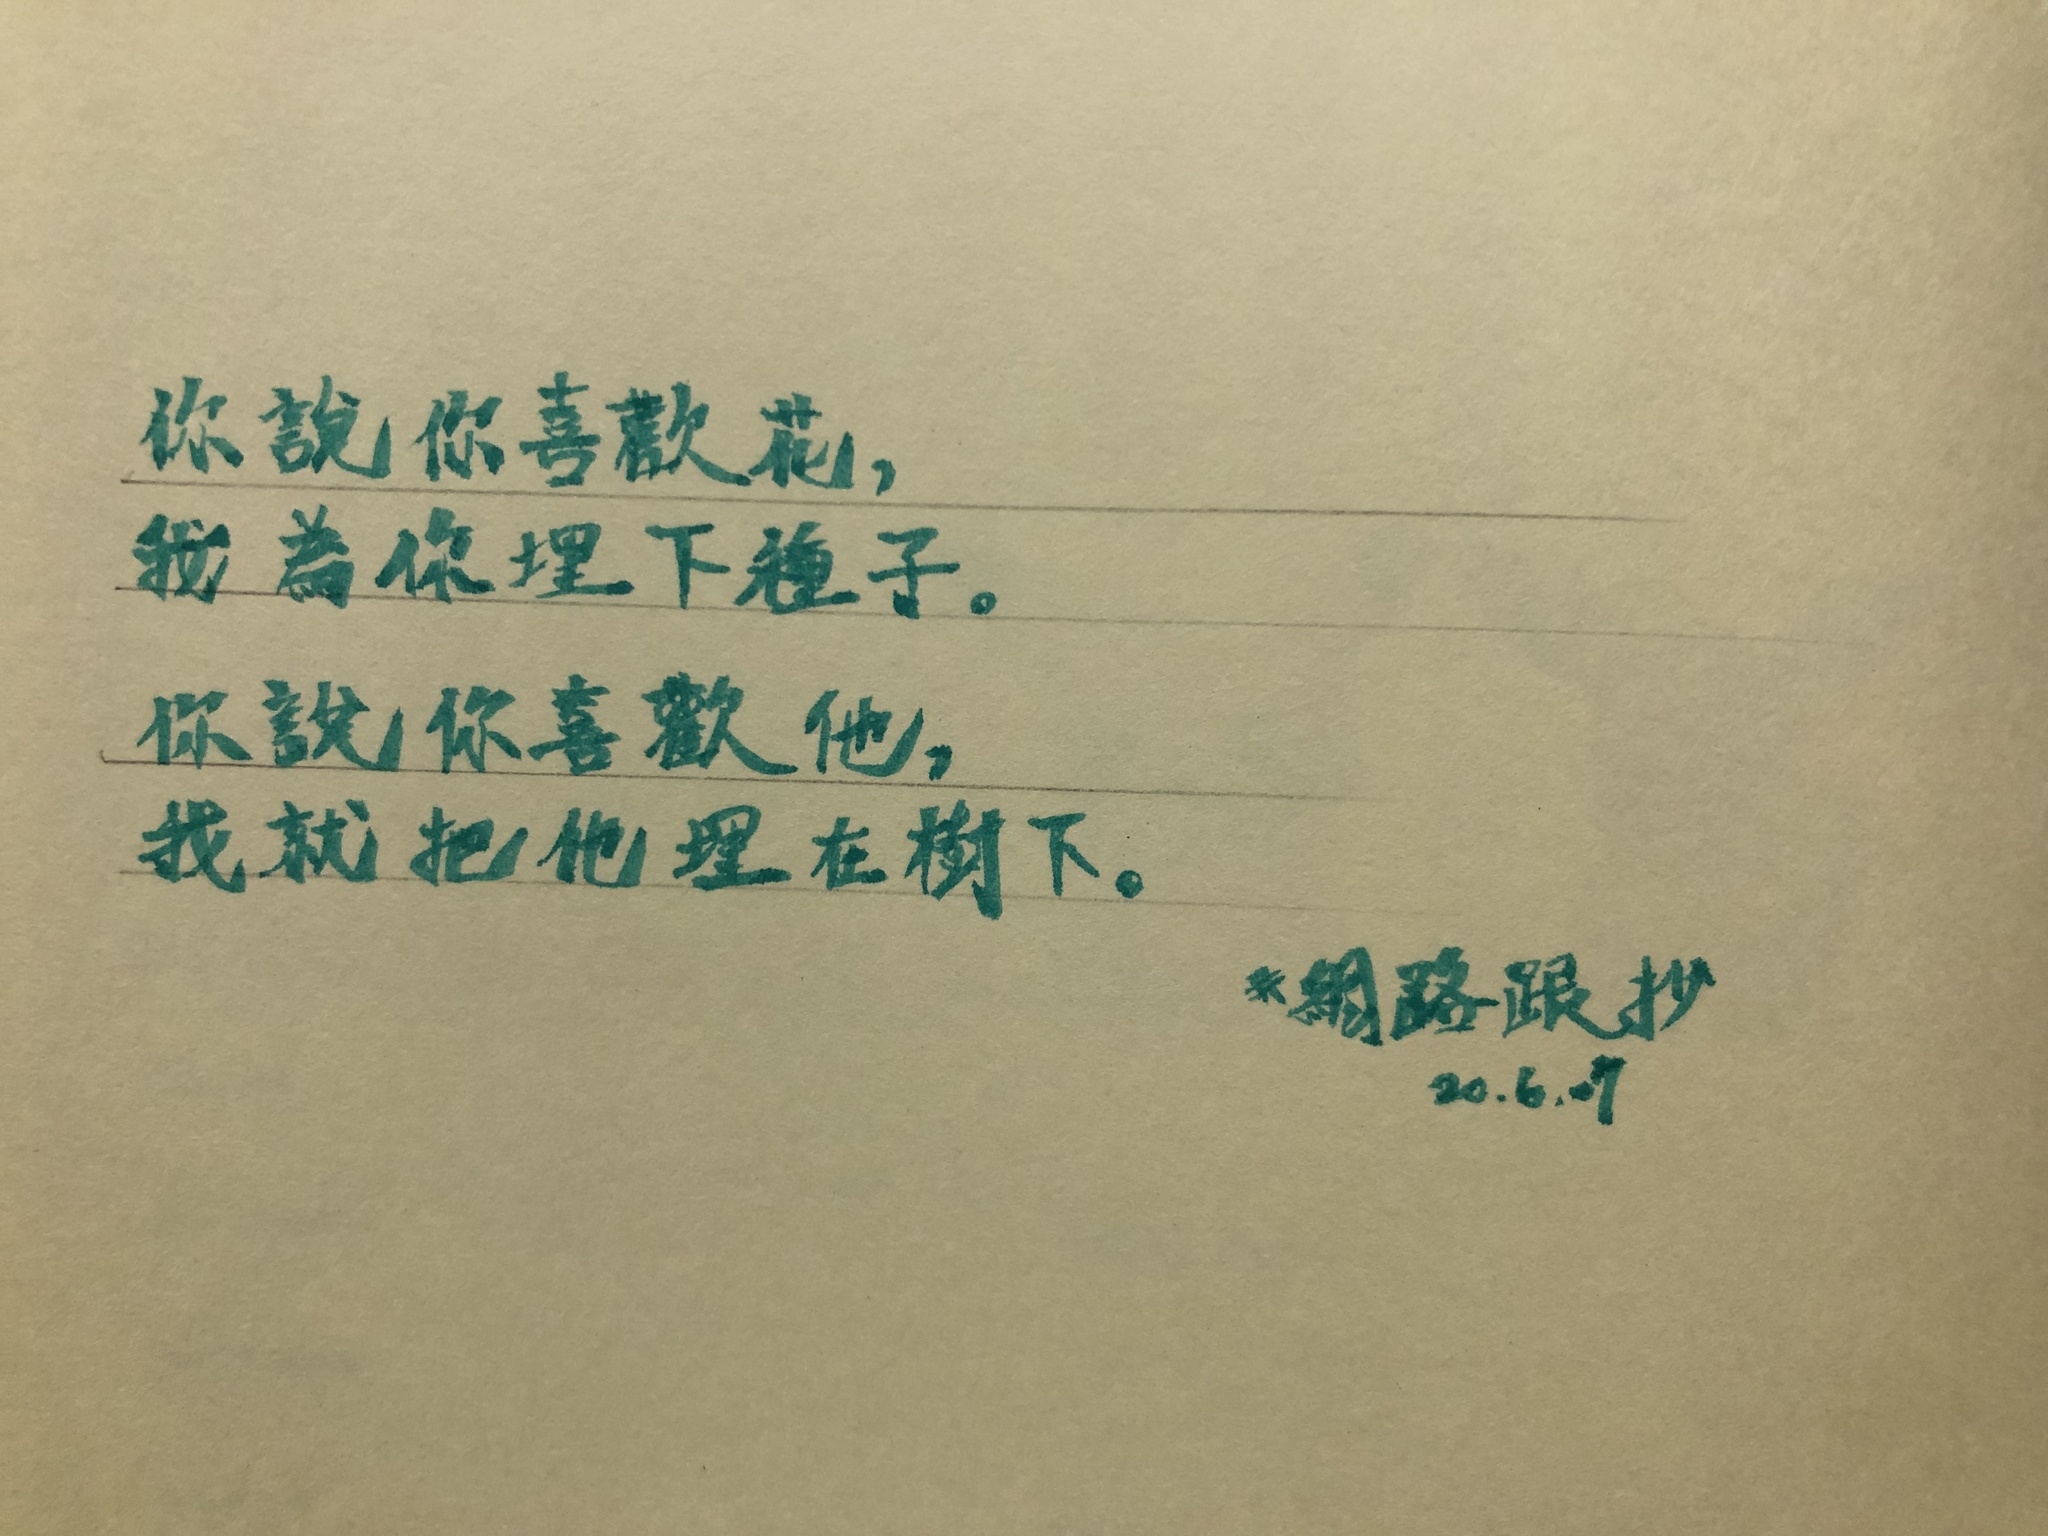 你說你喜歡花，
我為你埋下種子。
你說你喜歡他，
我就把他埋在樹下。
*網路跟抄
20.6.07